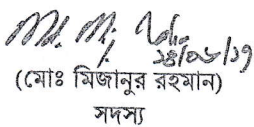 ১৪/০৮/১৭
(মোঃ মিজানুর রহমান)
সদস্য